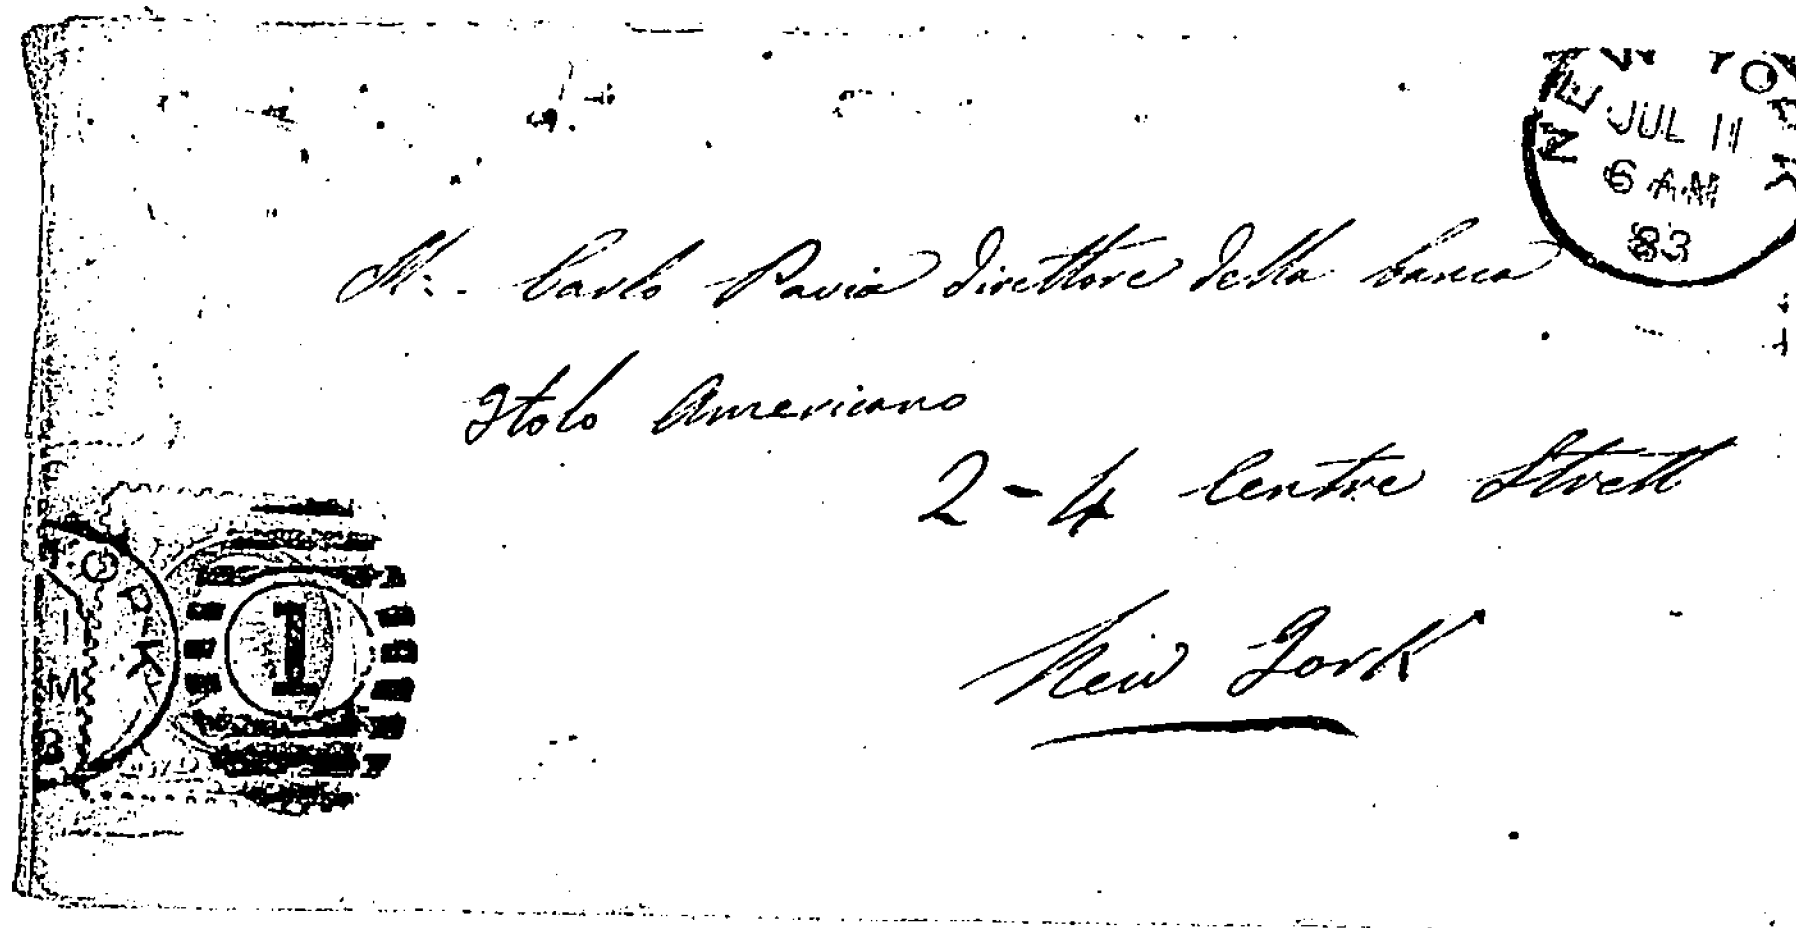 NEW YORK
JUL 11
6 AM
83
M: Carlo Pavia direttore della banca
Italo Americano
2-4 Centre Strett
New York
YORK
1
M